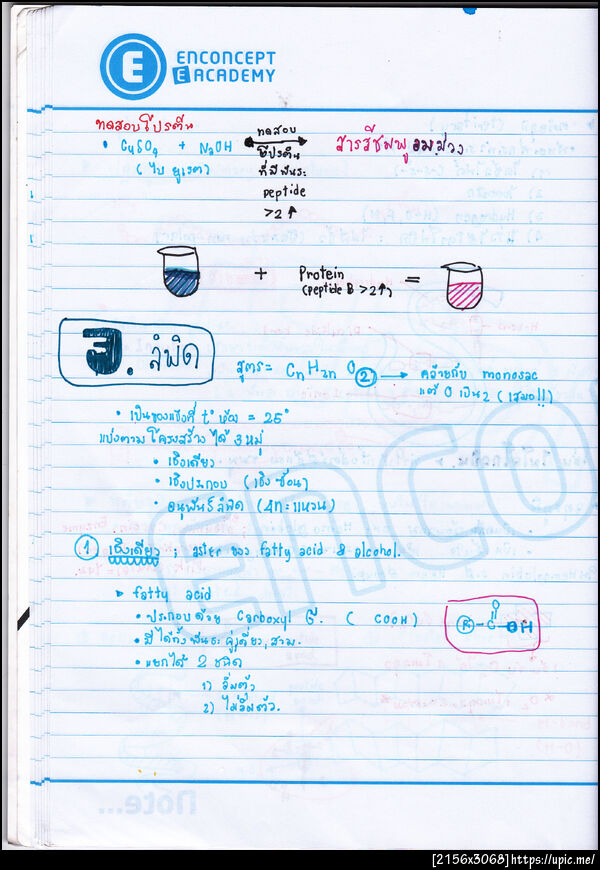 ENCONCEPT
E ACADEMY
ทดสอบโปรตีน
• CuSO4 + NaOH
(ไบยูเรต)
ทดสอบ
โปรตีน
ที่มีพันธะ
peptide
>2↑
สารสีชมพูอมม่วง
+ Protein =
(peptide B >2↑)
3. ลิพิด
สูตร = CnH2nO2 → คล้ายกับ monosac
แต่ O เป็น 2 (เสมอ!!)
• เป็นของแข็งที่ t° ห้อง = 25°
แบ่งตามโครงสร้างได้ 3 หมู่
• เชิงเดี่ยว
• เชิงประกอบ (เชิงซ้อน)
• อนุพันธ์ลิพิด (4n=แหวน)
1 เชิงเดี่ยว ; aster ของ fatty acid & alcohol.
fatty acid
• ประกอบด้วย Carboxyl G. (COOH)
• มีได้ทั้งพันธะคู่, เดี่ยว, สาม.
• แยกได้ 2 ชนิด
1) อิ่มตัว
2) ไม่อิ่มตัว.
O
R-C-OH
Note...
[2156x3068]https://upic.me/